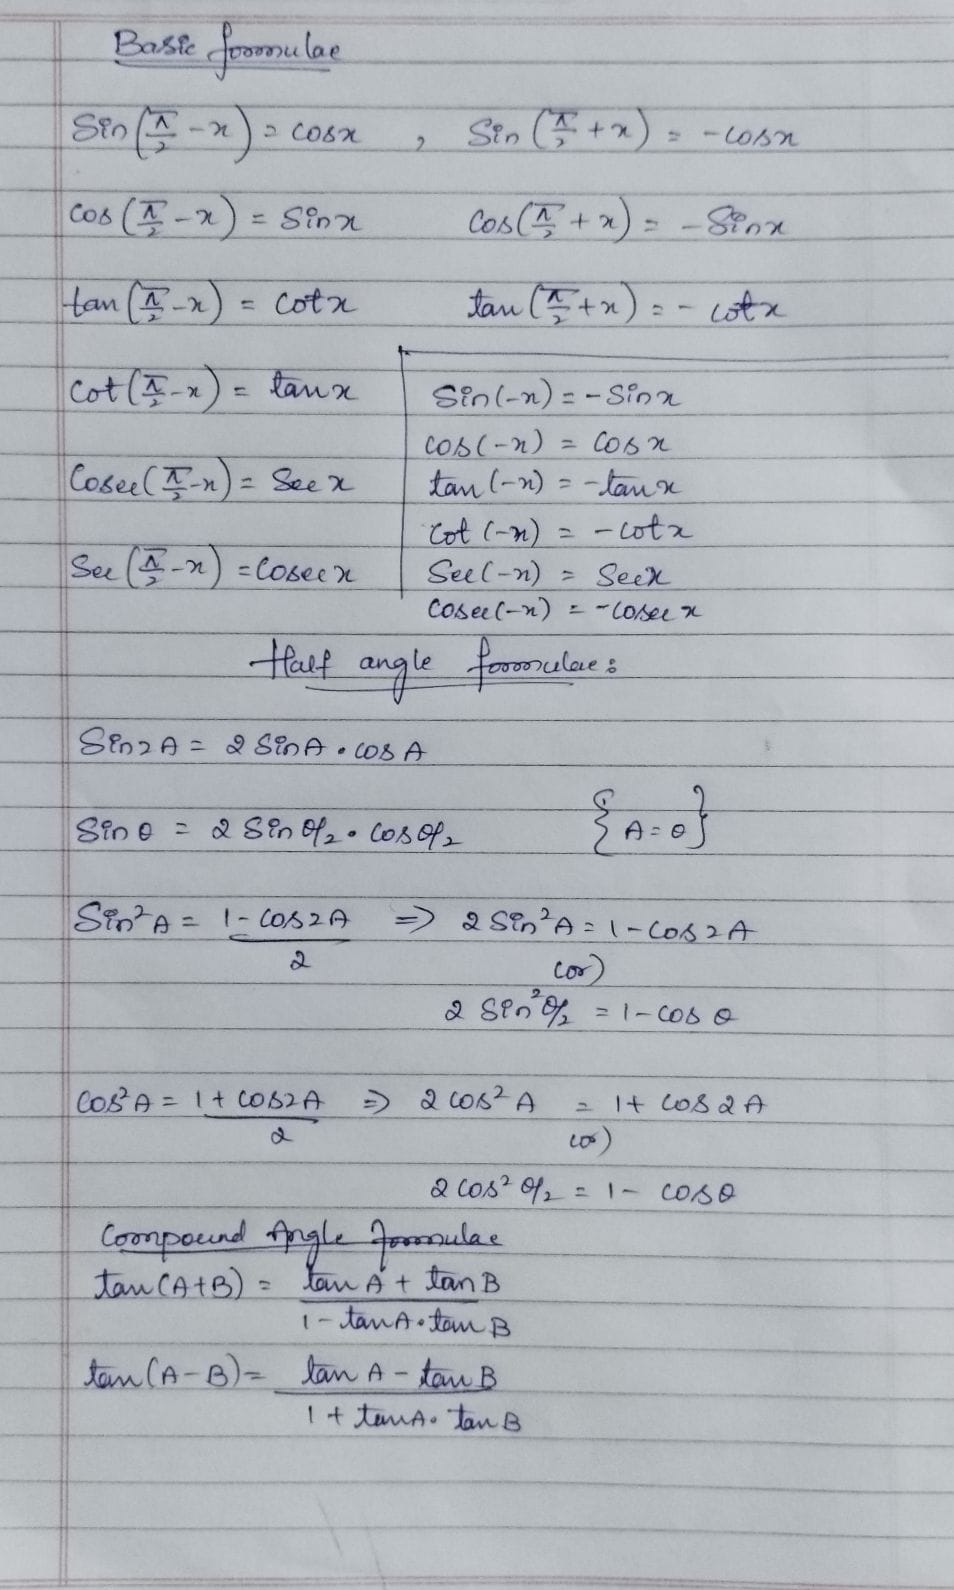 Basic formulae
Sin(π/2 - x) = cosx , Sin(π/2 + x) = -cosx
cos(π/2 - x) = Sinx Cos(π/2 + x) = -Sinx
tan(π/2 - x) = cotx tan(π/2 + x) = - cotx
Cot(π/2 - x) = tanx
Sin(-x) = - Sinx
cos(-x) = cosx
Cosec(π/2 - x) = Secx
tan(-x) = -tanx
Cot(-x) = - cotx
Sec(π/2 - x) = Cosecx
Sec(-x) = Secx
Cosec(-x) = -cosecx
Half angle formulae:
Sin2A = 2 SinA . cosA
Sinθ = 2 Sin θ/2 . cos θ/2 {A = θ}
Sin²A = (1 - cos2A)/2 ⇒ 2 Sin²A = 1 - cos2A
(or)
2 Sin²θ/2 = 1 - cosθ
Cos²A = (1 + cos2A)/2 ⇒ 2 cos²A = 1 + cos2A
(or)
2 cos²θ/2 = 1 - cosθ
Compound Angle formulae
tan(A+B) = (tanA + tanB)/(1 - tanA . tanB)
tan(A-B) = (tanA - tanB)/(1 + tanA . tanB)